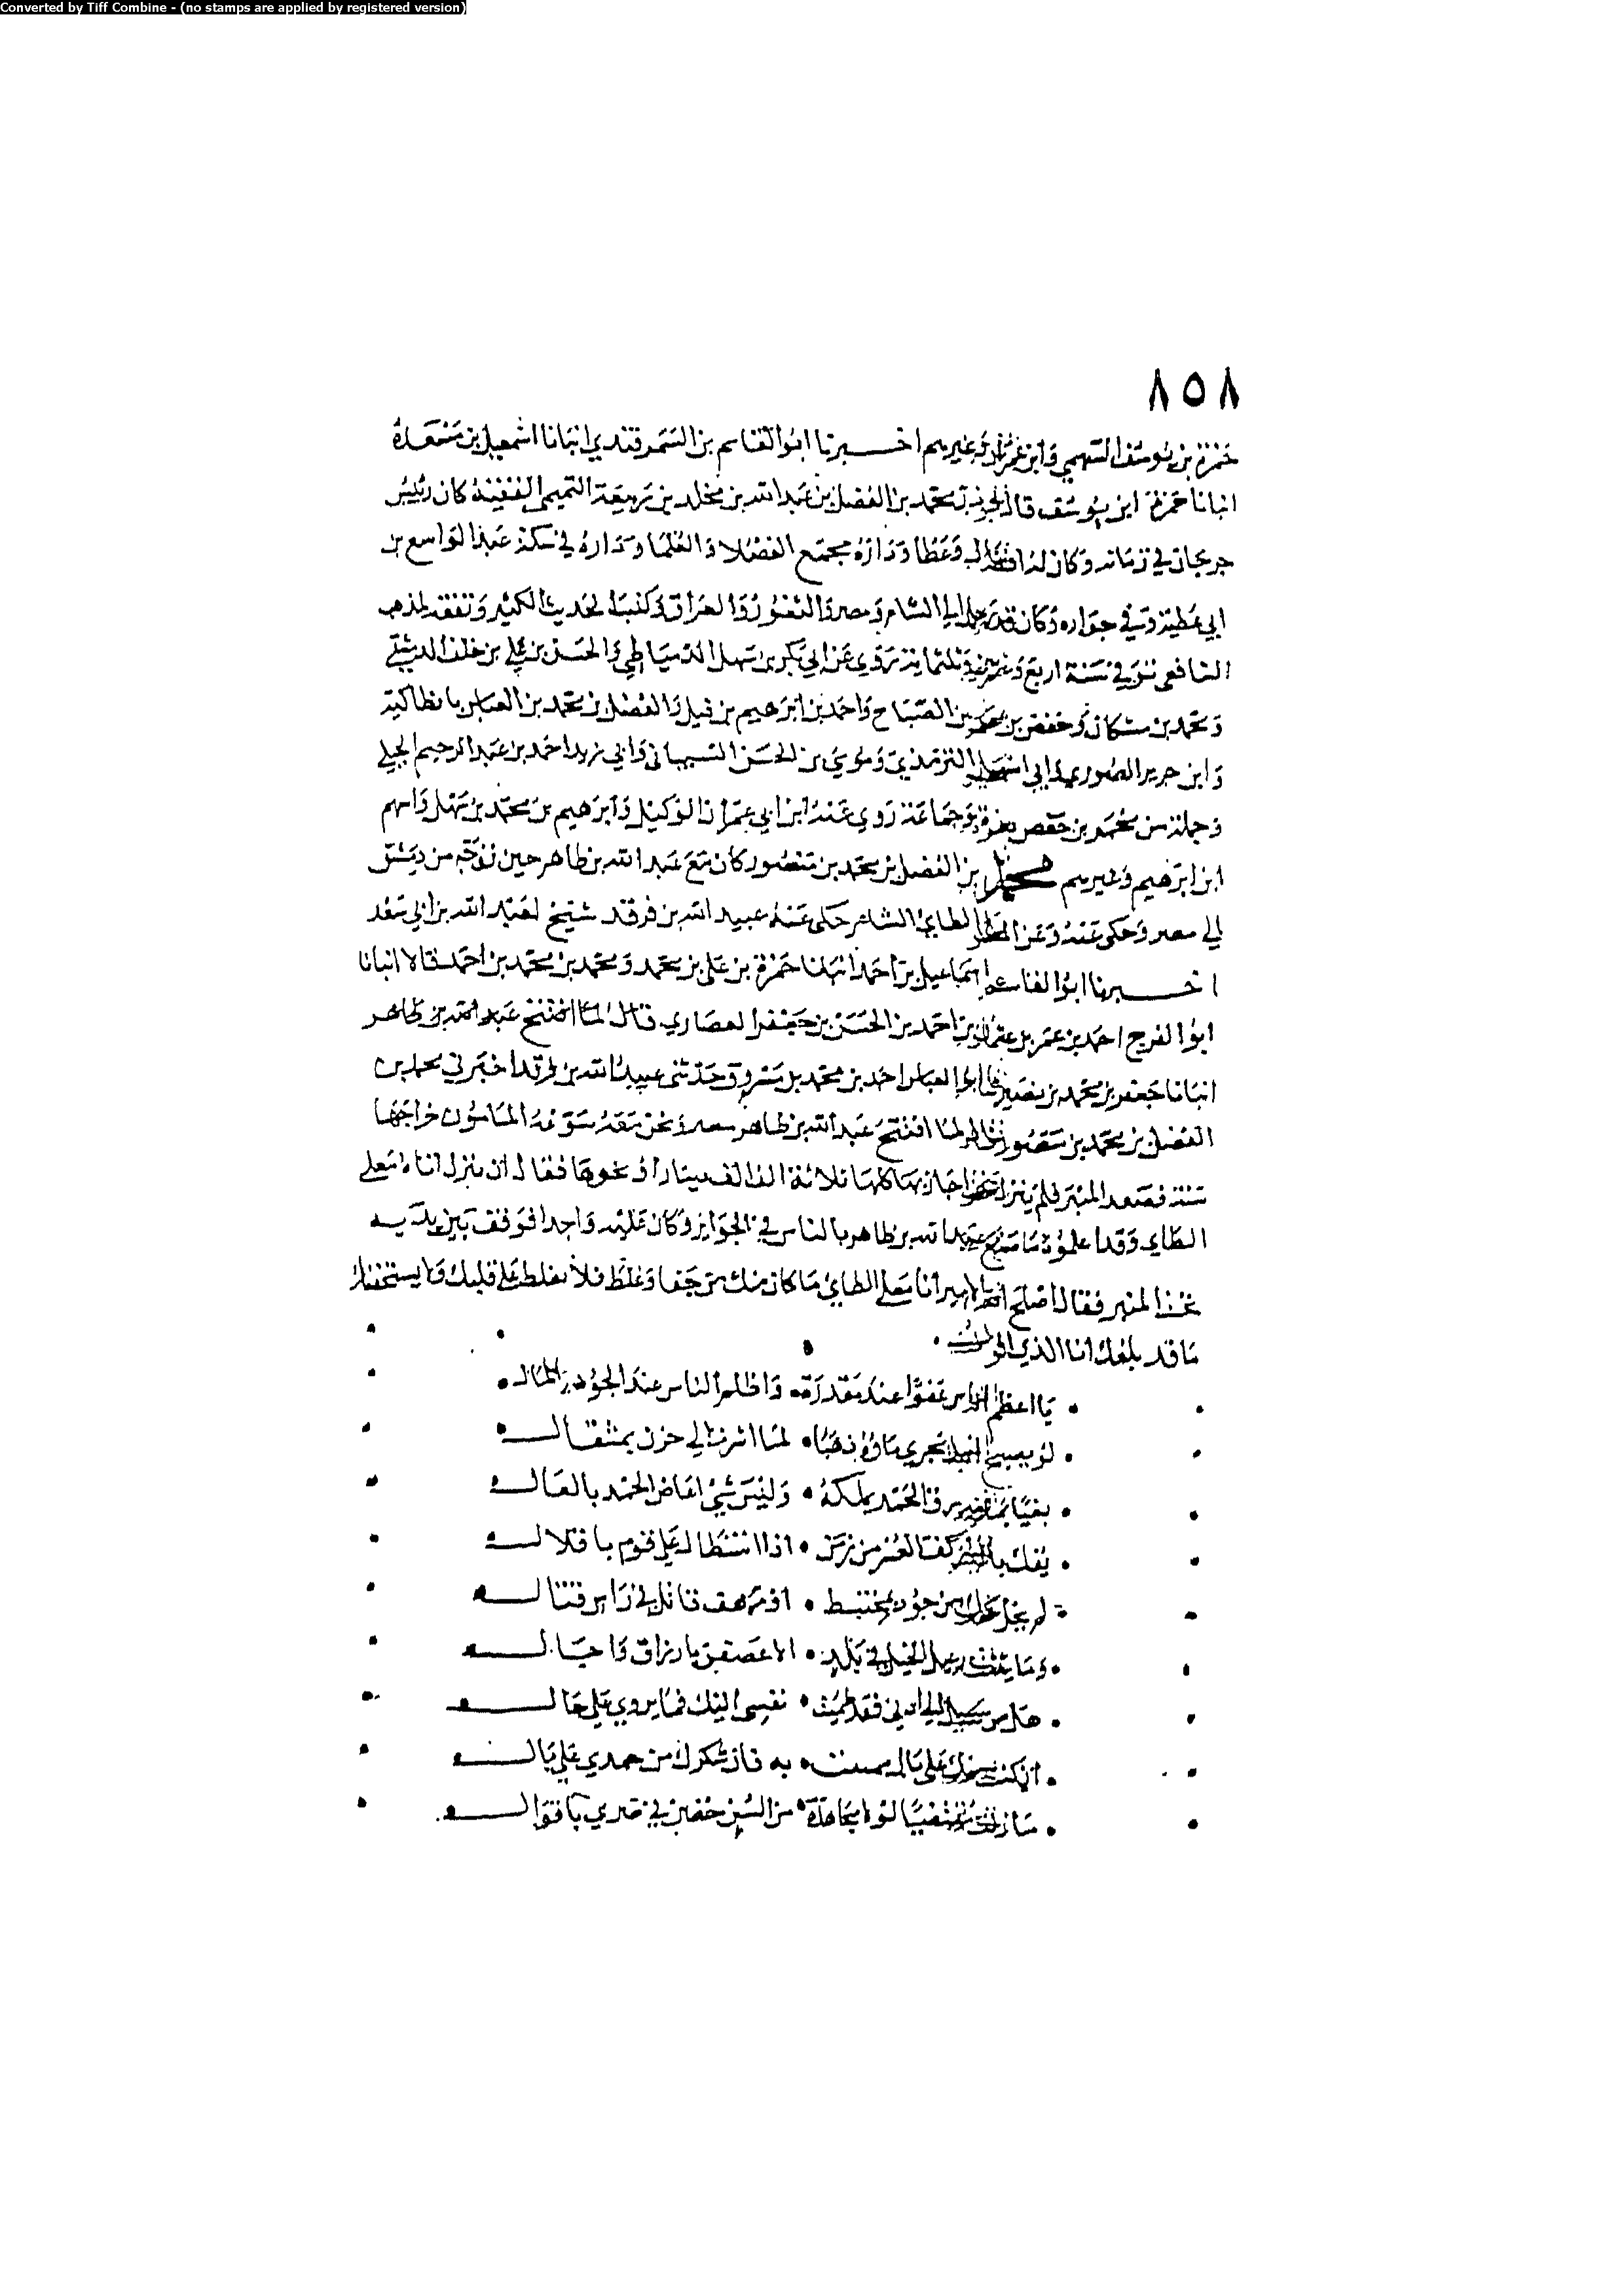 Converted by Tiff Combine - (no stamps are applied by registered version)
٨٥٨
حمزة بن يوسف السهمي وابن وغيرهم اخبرنا ابو القاسم بن السمرقندي انبانا اسمعيل بن مسعدة
انبانا حمزة ابن يوسف قال محمد بن الفضل بن عبد الله بن مخلد بن ربيعة التميمي الفقيه كان رئيس
جرجان في زمانه وكان له وعطا وداره مجمع الفضلا والعلما وداره في سكة عبد الواسع بن
ابي عطية وفي جواره وكان قد رحل الي الشام ومصر والثغور والعراق وكتب الحديث الكثير وتفقه لمذهب
الشافعي توفي سنة اربع وثلثماية يروي عن ابي بكر بن سهل الدمياطي والحسن بن علي بن خلف الدمشقي
ومحمد بن مشكان وحفص بن عمر بن الصباح واحمد بن ابرهيم بن فيل والفضل بن محمد بن العباس بانطاكية
وابن جرير الصوري وابي اسمعيل الترمذي وموسي بن الحسن وابي زيد احمد بن عبد الرحيم
وجماعة روي عنه ابن ابي عمران الوكيل وابرهيم بن محمد بن سهل واسهم
ابن ابرهيم وغيرهم محمد بن الفضل بن محمد بن منصور كان مع عبد الله بن طاهر حين توجه من دمشق
الي مصر وحكي عنه وعن الطاي الشاعر حكي عنه عبيد الله بن فرقد شيخ لعبد الله بن ابي سعد
اخبرنا ابو القاسم اسماعيل بن احمد انبانا حمزة بن علي بن محمد ومحمد بن محمد بن احمد قالا انبانا
ابو الفرج احمد بن عمر بن عثمان بن احمد بن الحسن بن جعفر قال لما افتتح عبد الله بن طاهر
انبانا جعفر بن محمد بن نصير ابو العباس احمد بن محمد بن مسروق حدثني عبيد الله بن فرقد اخبرني محمد بن
الفضل بن محمد بن منصور قال لما افتتح عبد الله بن طاهر مصر ونحن معه سوغه المامون خراجها
سنة فصعد المنبر فلم ينزل حتي اجاز بها كلها ثلاثة الف الف دينار او نحوها فقال ان ينزل اتاه معلي
الطاي وقد اعلموه ما صنع عبد الله بن طاهر بالناس في الجوايز وكان عليه واجدا فوقف بين يديه
المنبر فقال اصلح الله الامير انا معلي الطاي ما كان منك من جفا وغلظ فلا يغلظ علي قلبك ولا يستخفنك
ما قد بلغك انا الذي
يا اعظم الناس عفوا عند مقدرة واظلم الناس عند الجود للمال
لو يصبح النيل يجري ماؤه ذهبا لما اشرت الي خزن بمثقال
رق الحمد يملكه وليس شي اعاض الحمد بالغال
يفك كف العسر من زمن اذا استطال علي قوم باقلال
لم يخل كفك من جود لمختبط او مرهف قاتل في راس قتال
وما رعيل الخيل في بلد الا عصفن بارزاق واجال
هل من سبيل الي اذن فقد ظميت نفسي اليك فما يروي علي حال
ان كنت منك علي بال به فان شكرك من حمدي علي بال
ما زلت مقتضيا لولا مجاهدة من السن خضن في صدري باقوال